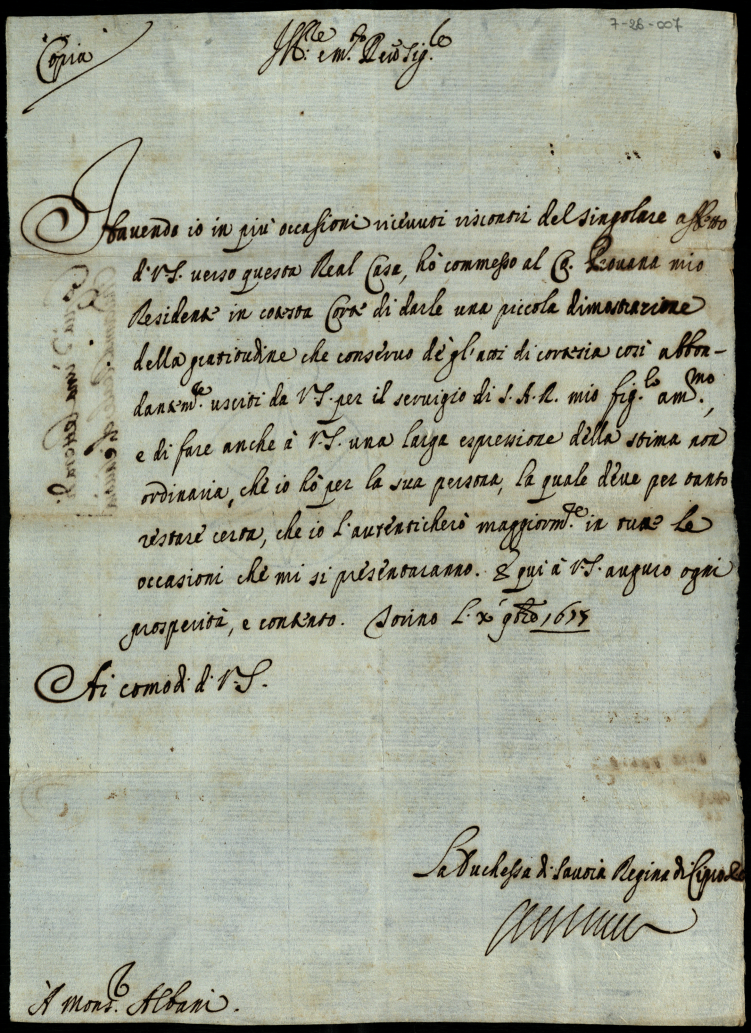 7-26-007
Copia
Ill.re e m.to Rev. Sig.re
Havendo io in più occasioni ricevuti riscontri del singolare affetto
di V.S. verso questa Real Casa, hò commesso al C. Provana mio
Residente in cotesta Corte di darle una piccola dimostrazione
della gratitudine che conservo de gl'atti di cortesia così abbon-
dantem.te usciti da V.S. per il servigio di S.A.R. mio fig.lo am.mo,
e di fare anche à V.S. una larga espressione della stima non
ordinaria, che io hò per la sua persona, la quale deve per tanto
restare certa, che io l'autenticherò maggiorm.te in tutte le
occasioni che mi si presentaranno. E qui à V.S. auguro ogni
prosperità, e contento. Torino li x 9bre 1675
Ai comodi di V.S.
La Duchessa di Savoia Regina di Cipro &c
A Mons.r Albani.